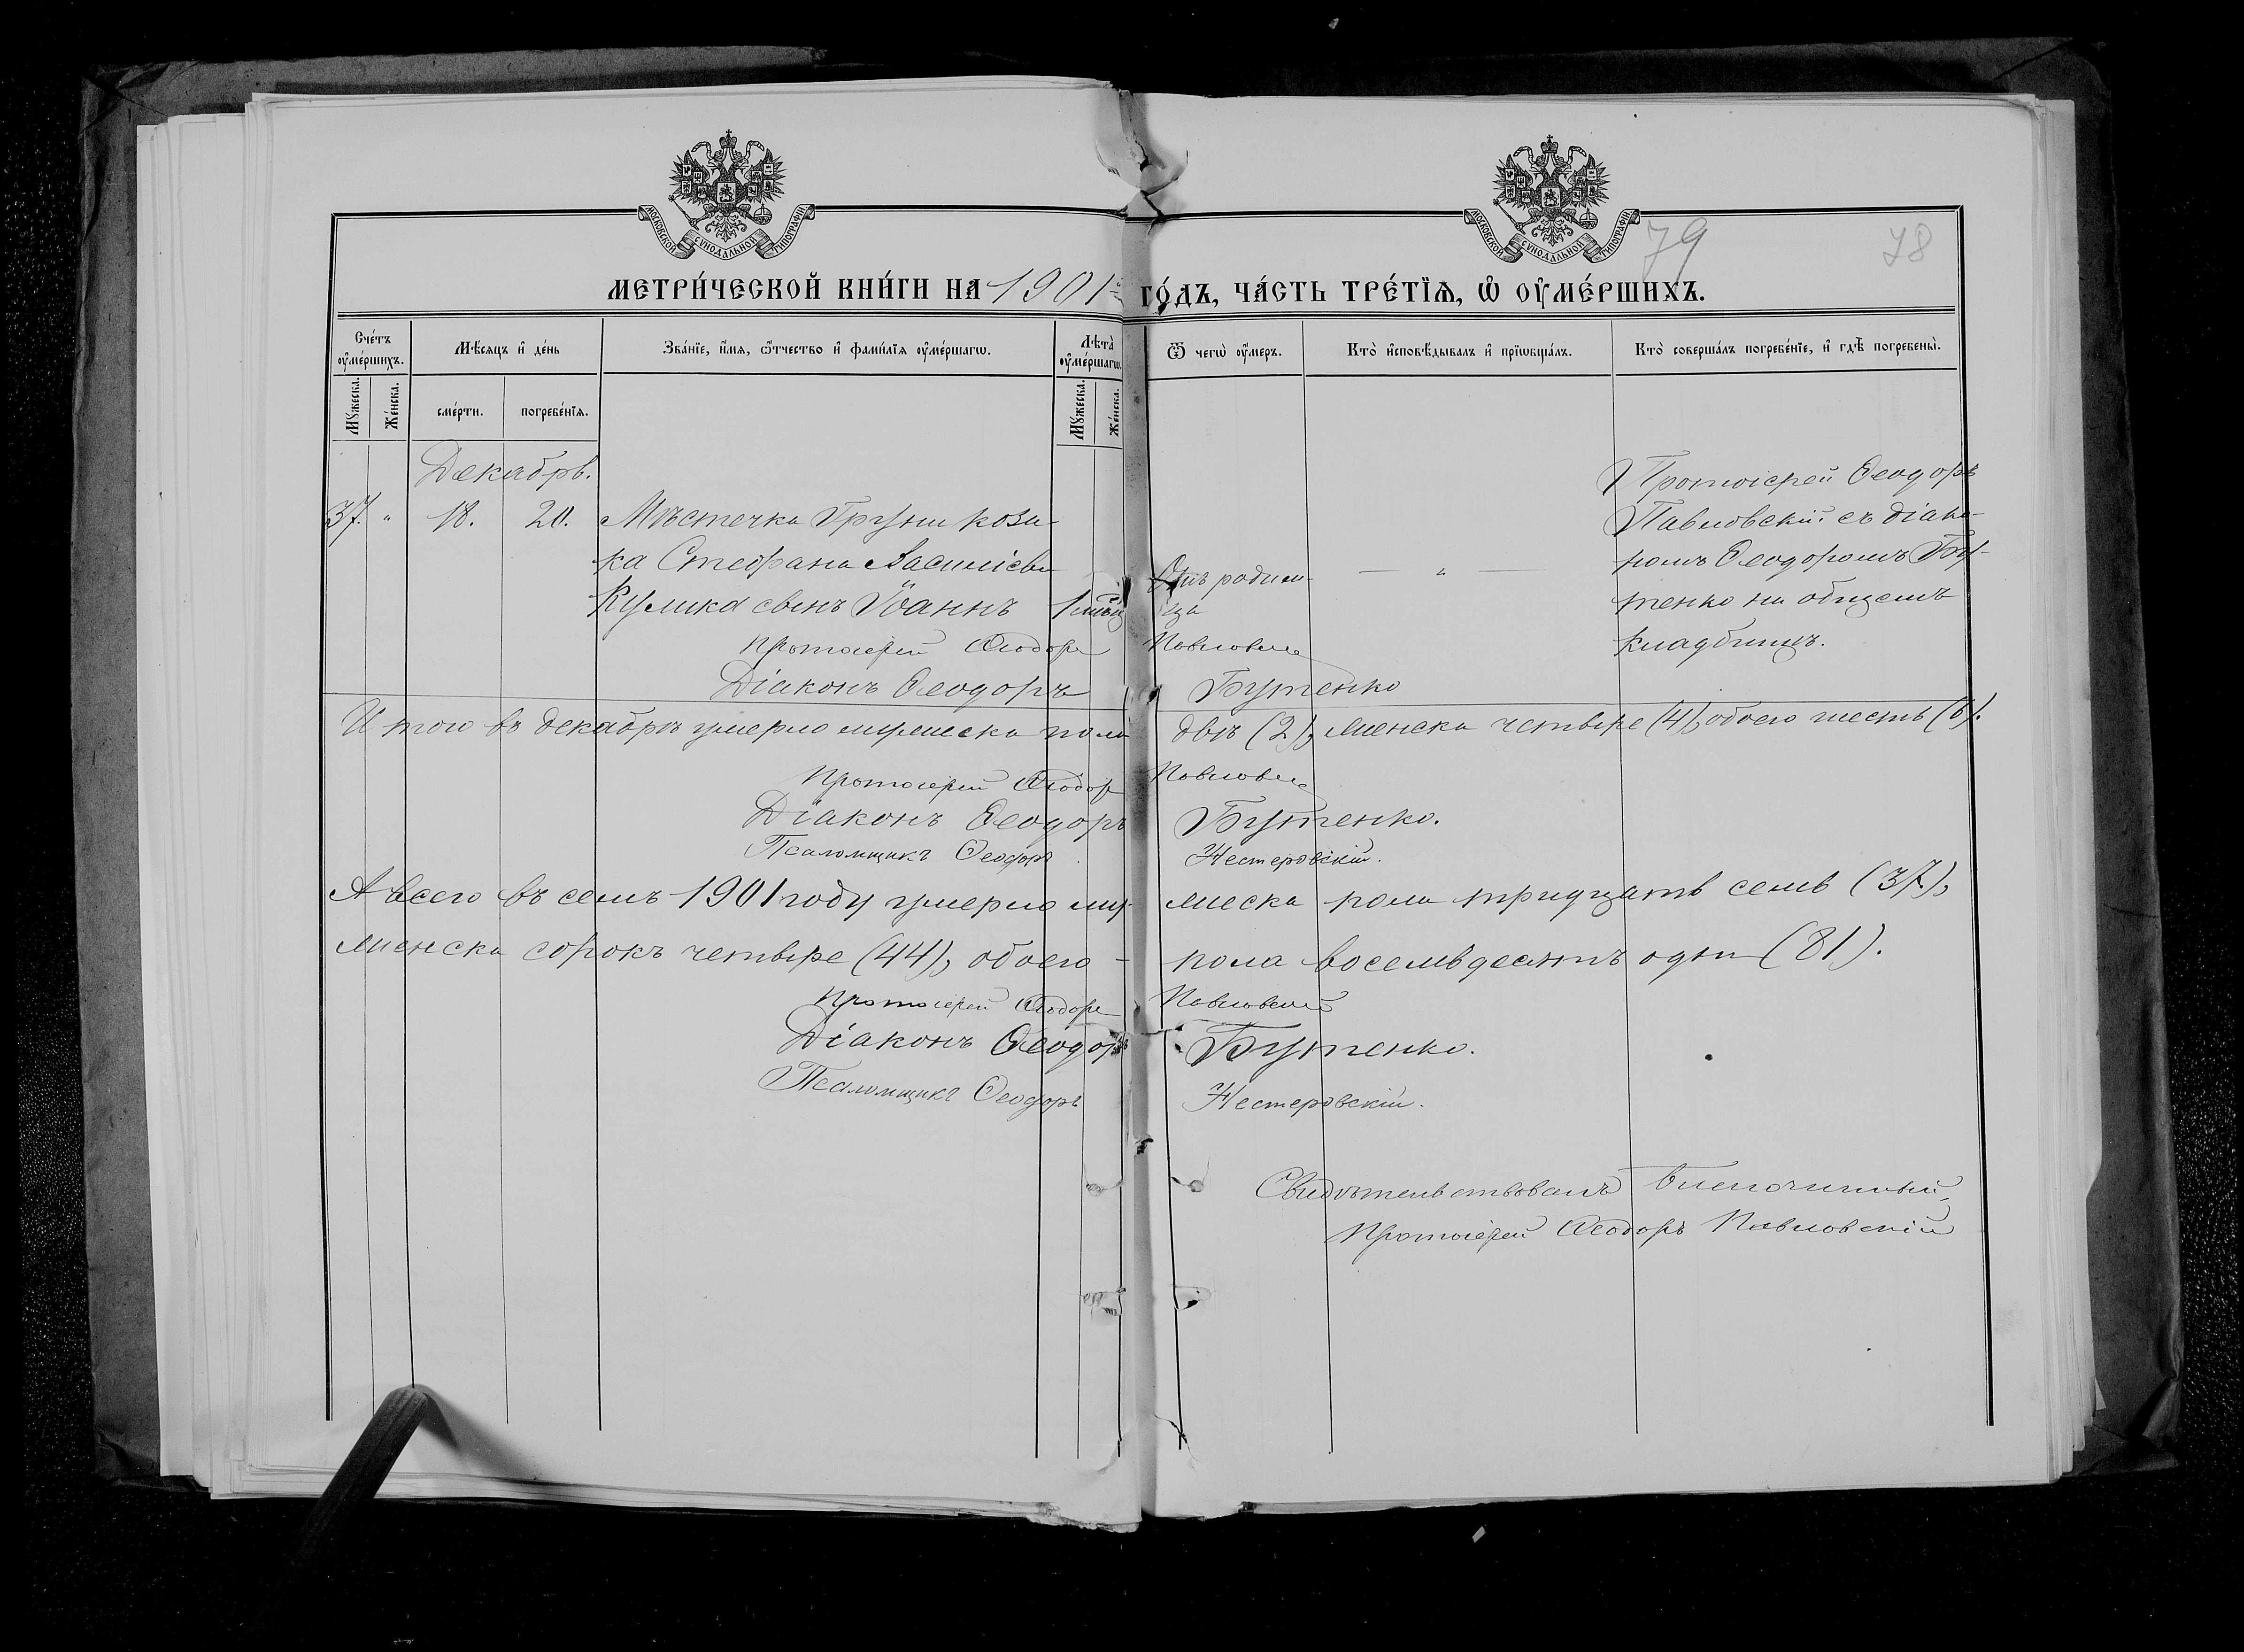 МОСКОВСКОЙ СѴНОДАЛЬНОЙ ТИПОГРАФІИ
МОСКОВСКОЙ СѴНОДАЛЬНОЙ ТИПОГРАФІИ
79
78
МЕТРИ́ЧЕСКОЙ КНИ́ГИ НА 1901 ГО́ДЪ, ЧА́СТЬ ТРЕ́ТЇѦ, Ѡ҆ ОУ҆МЕ́РШИХЪ.
Сче́тъ оу҆ме́ршихъ.
Мѣ́сяцъ и҆ де́нь
Зва́нїе, и҆́мѧ, ѻ҆́тчество и҆ фами́лїѧ оу҆ме́ршагѡ.
Лѣ́та̀ оу҆ме́ршагѡ.
Ѿ чегѡ̀ оу҆́меръ.
Кто̀ и҆сповѣ́дывалъ и҆ прїѡбща́лъ.
Кто̀ соверша́лъ погребе́нїе, и҆ гдѣ̀ погребены̀.
Мꙋ́жеска.
Же́нска.
сме́рти.
погребе́нїѧ.
Мꙋ́жеска.
Же́нска.
Декабрь.
37. " 18. 20. Мѣстечка Груни коза-
ка Стефана Василіева
Кулика сынъ Іоаннъ
Отъ родим-
ца
— " —
Протоіерей Ѳеодоръ
Павловскій съ діако-
номъ Ѳеодоромъ Бу-
тенко на общемъ
кладбищѣ.
Протоіерей Ѳеодоръ Павловскій
Діаконъ Ѳеодоръ Бутенко
Итого въ декабрѣ умерло мужеска пола двѣ (2), женска четыре (4), обоего шесть (6).
Протоіерей Ѳеодоръ Павловскій
Діаконъ Ѳеодоръ Бутенко.
Псаломщикъ Ѳеодоръ Нестеровскій.
А всего въ семъ 1901 году умерло му- жеска пола тридцать семь (37),
женска сорокъ четыре (44), обоего - пола восемьдесятъ одн (81).
Протоіерей Ѳеодоръ Павловскій
Діаконъ Ѳеодоръ Бутенко.
Псаломщикъ Ѳеодоръ Нестеровскій.
Свидѣтельствовалъ Благочинный,
Протоіерей Ѳеодоръ Павловскій